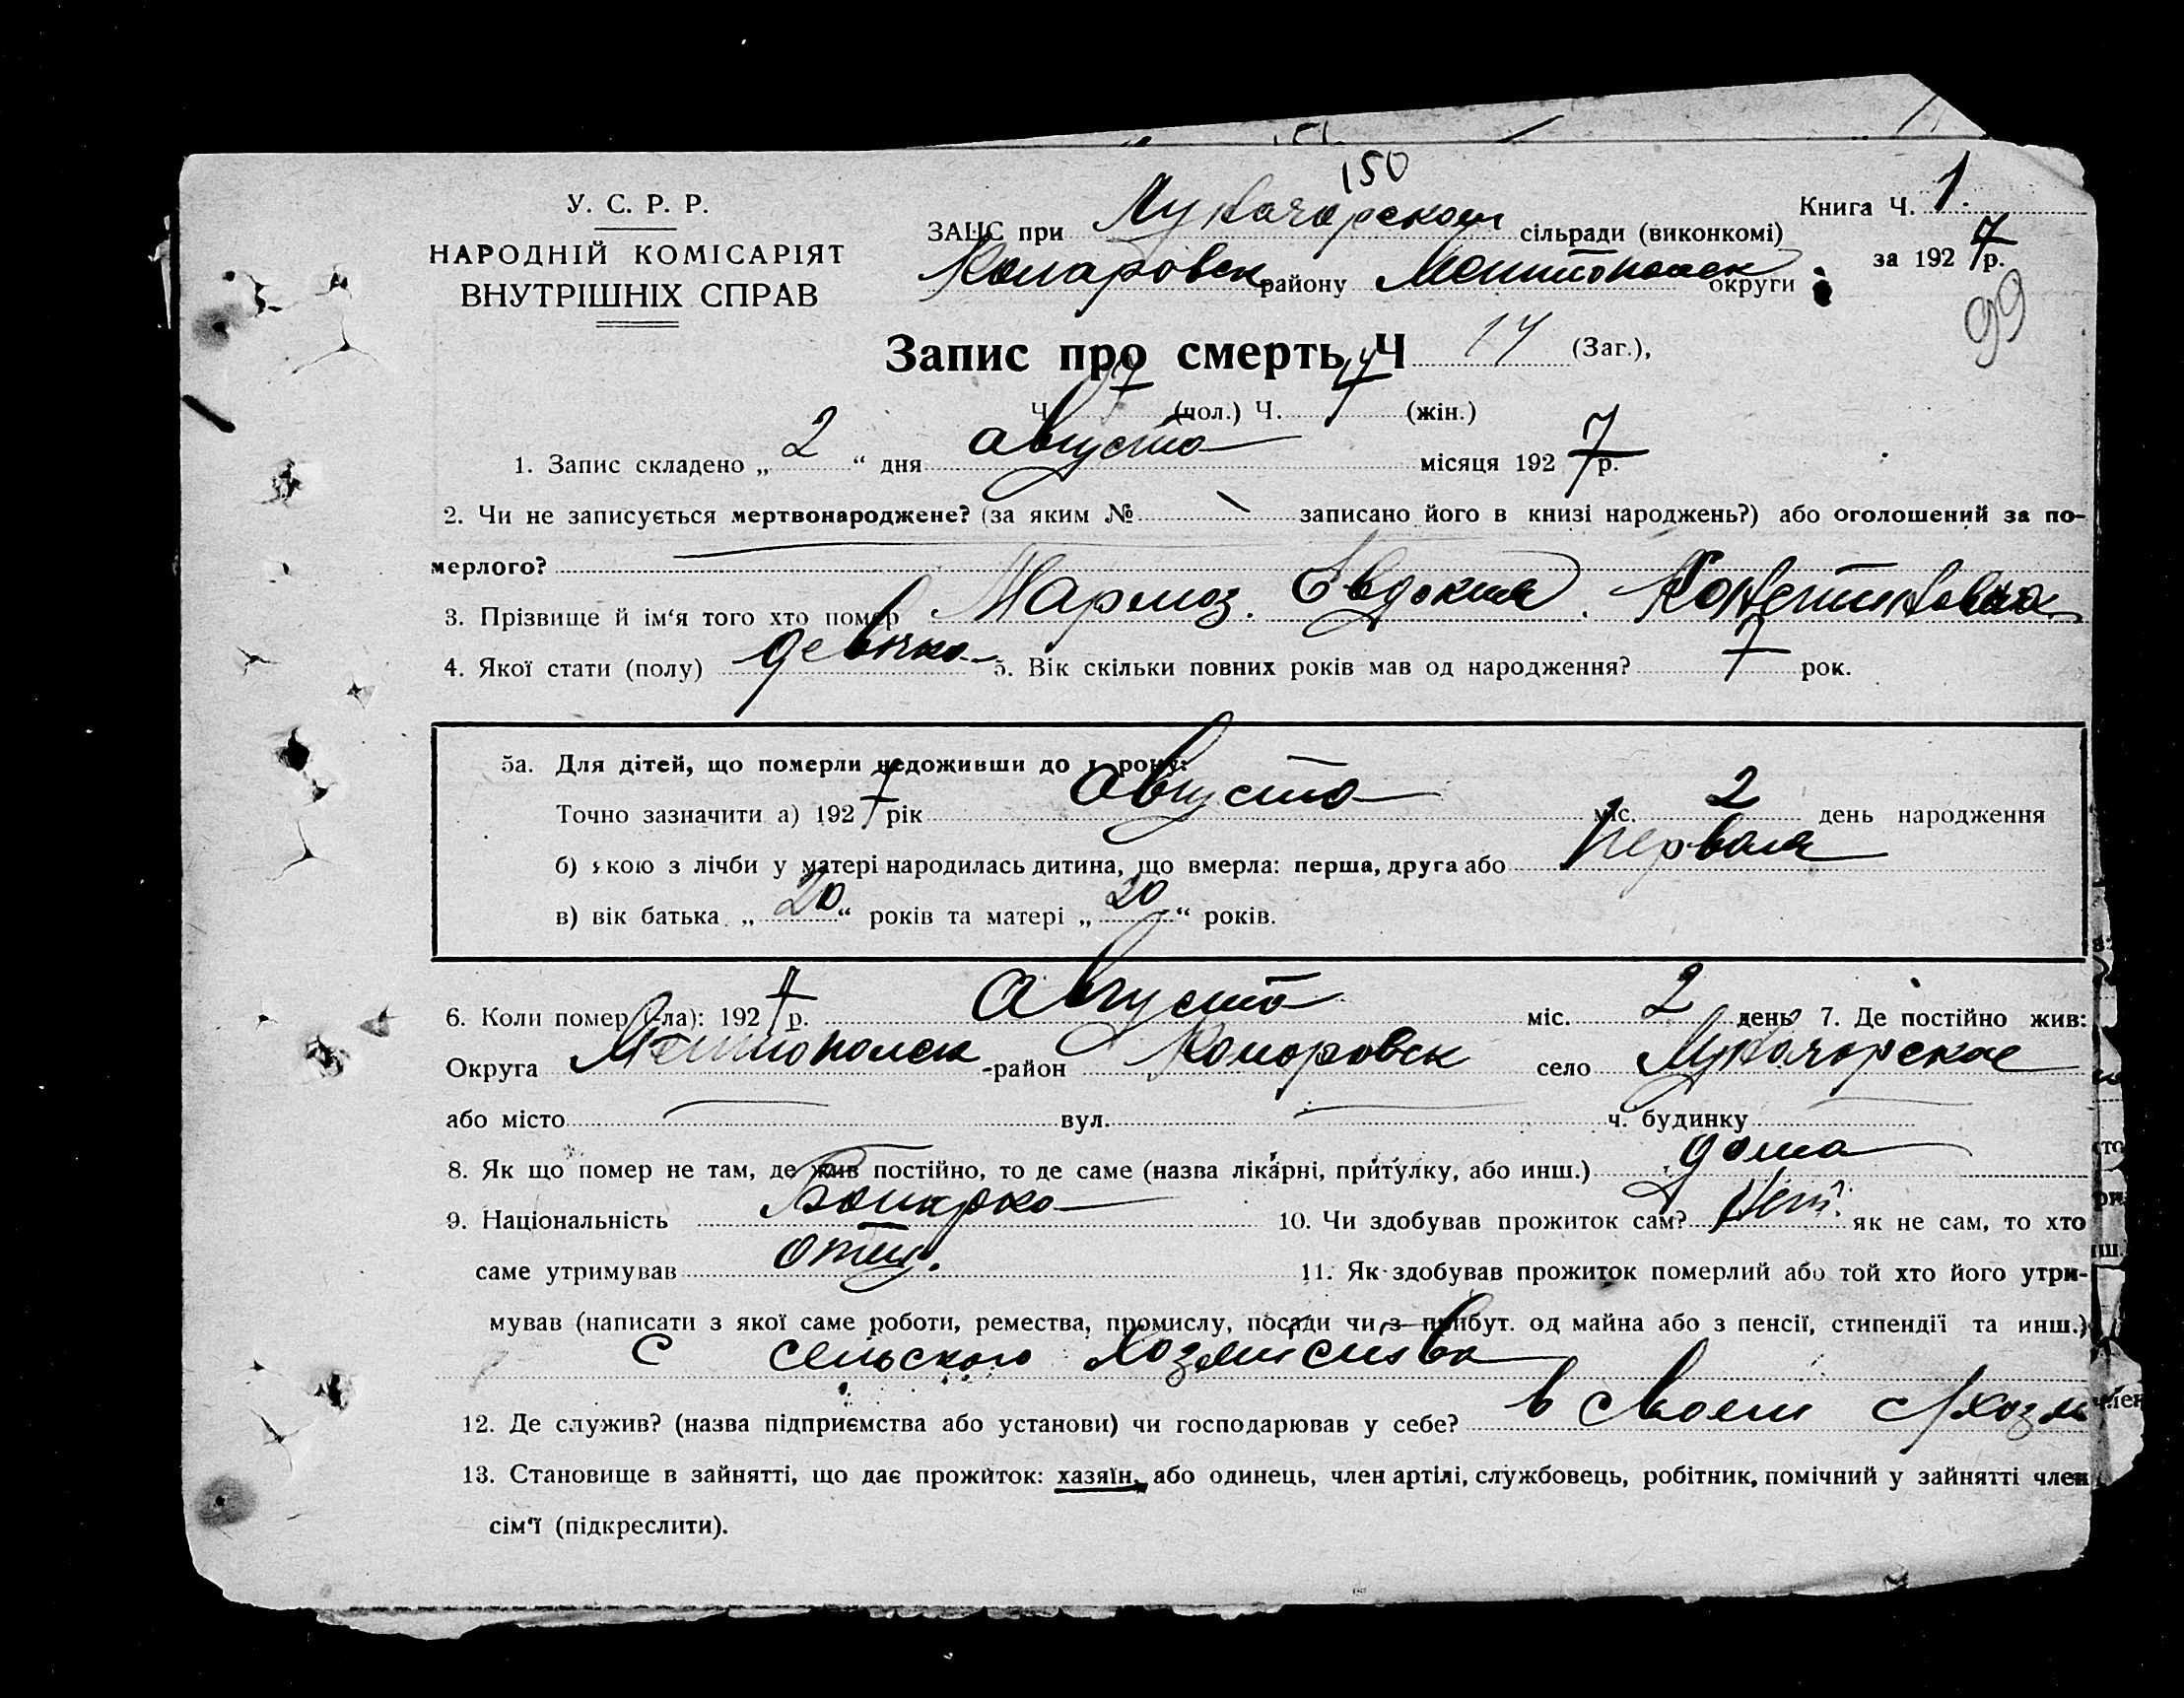 150
У. С. Р. Р.
НАРОДНІЙ КОМІСАРІЯТ
ВНУТРІШНІХ СПРАВ
ЗАЦС при Луначарском сільради (виконкомі)
Книга Ч. 1.
район у Мелитопольск округи
за 1927 р.
99
Запис про смерть Ч 14 (Заг.),
Ч. 7 (чол.) Ч. 7 (жін.)
1. Запис складено „ 2 “ дня августа місяця 1927 р.
2. Чи не записується мертвонароджене? (за яким № записано його в книзі народжень?) або оголошений за по-
мерлого?
3. Прізвище й ім'я того хто помер Мармоз. Евдокия.
4. Якої стати (полу) девочка 5. Вік скільки повних років мав од народження? 7 рок.
5а. Для дітей, що померли недоживши до 1 року:
Точно зазначити а) 1927 рік августа міс. 2 день народження
б) якою з лічби у матері народилась дитина, що вмерла: перша, друга або первая
в) вік батька „ 20 “ років та матері „ 20 “ років.
6. Коли помер (-ла): 1927 р. августа міс. 2 день 7. Де постійно жив:
Округа Мелитопольск -район село Луначарское
або місто вул. ч. будинку
8. Як що помер не там, де жив постійно, то де саме (назва лікарні, притулку, або инш.) дома
9. Національність Болгарка 10. Чи здобував прожиток сам? Нет. як не сам, то хто
саме утримував отец. 11. Як здобував прожиток померлий або той хто його утри-
мував (написати з якої саме роботи, ремества, промислу, посади чи з прибут. од майна або з пенсії, стипендії та инш.)
с сельского хозяйства
12. Де служив? (назва підприємства або установи) чи господарював у себе? в своем с/хозя
13. Становище в зайнятті, що дає прожиток: хазяїн, або одинець, член артілі, службовець, робітник, помічний у зайнятті член
сім'ї (підкреслити).